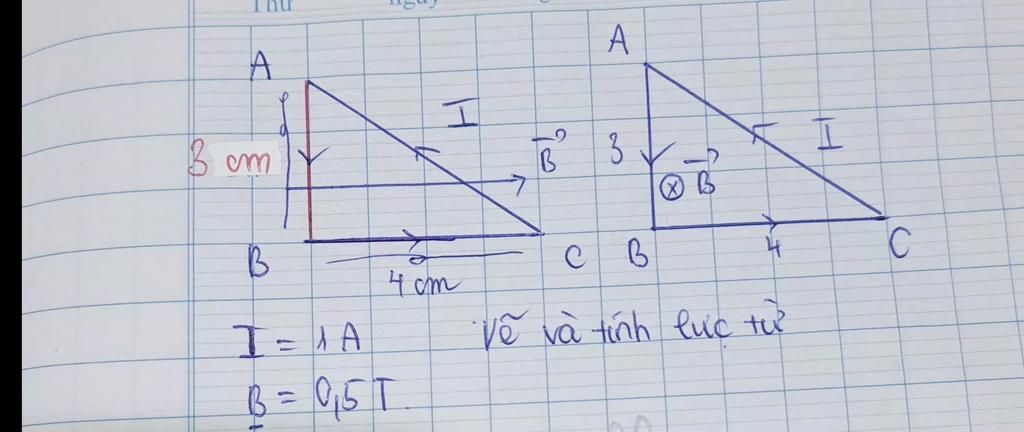 Thứ ngày
A
I
3 cm
B⃗
B
C
4 cm
A
I
3
B⃗
B
4
C
I = 1A
Vẽ và tính lực từ
B = 0,5 T